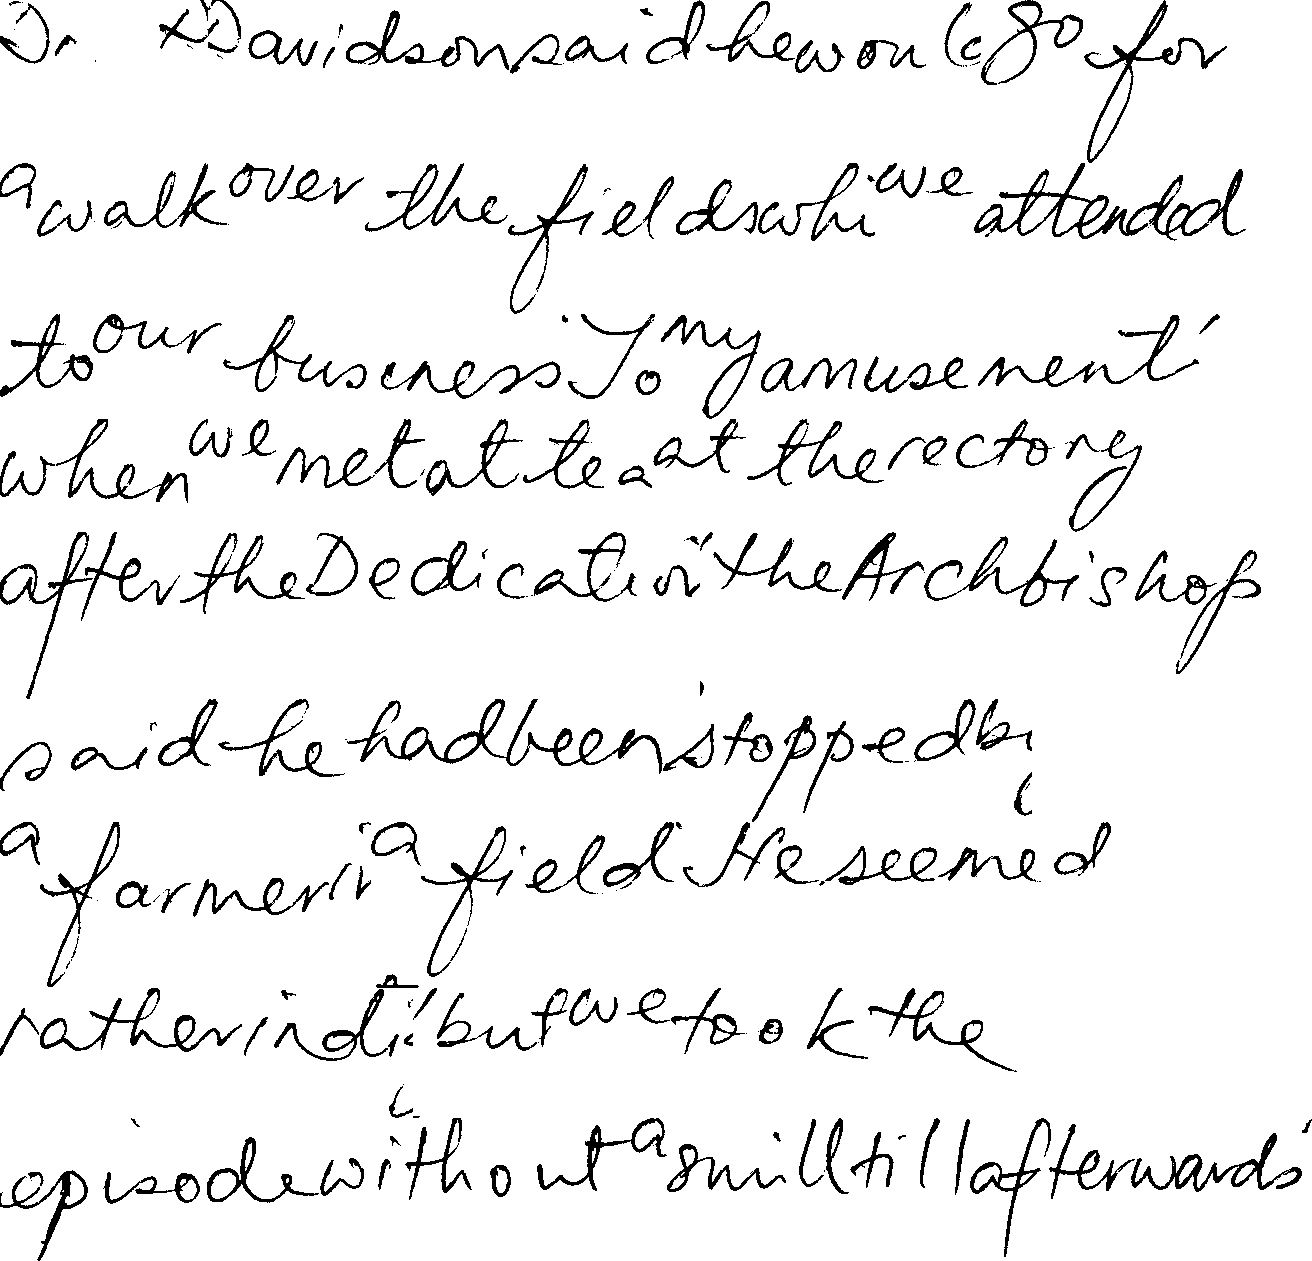 Dr. Davidson said he would go for
a walk over the fields while we attended
to our business. To my amusement
when we met at tea at the rectory
after the Dedication the Archbishop
said he had been stopped by
a farmer in a field. He seemed
rather but we took the
episode without a smile till afterwards